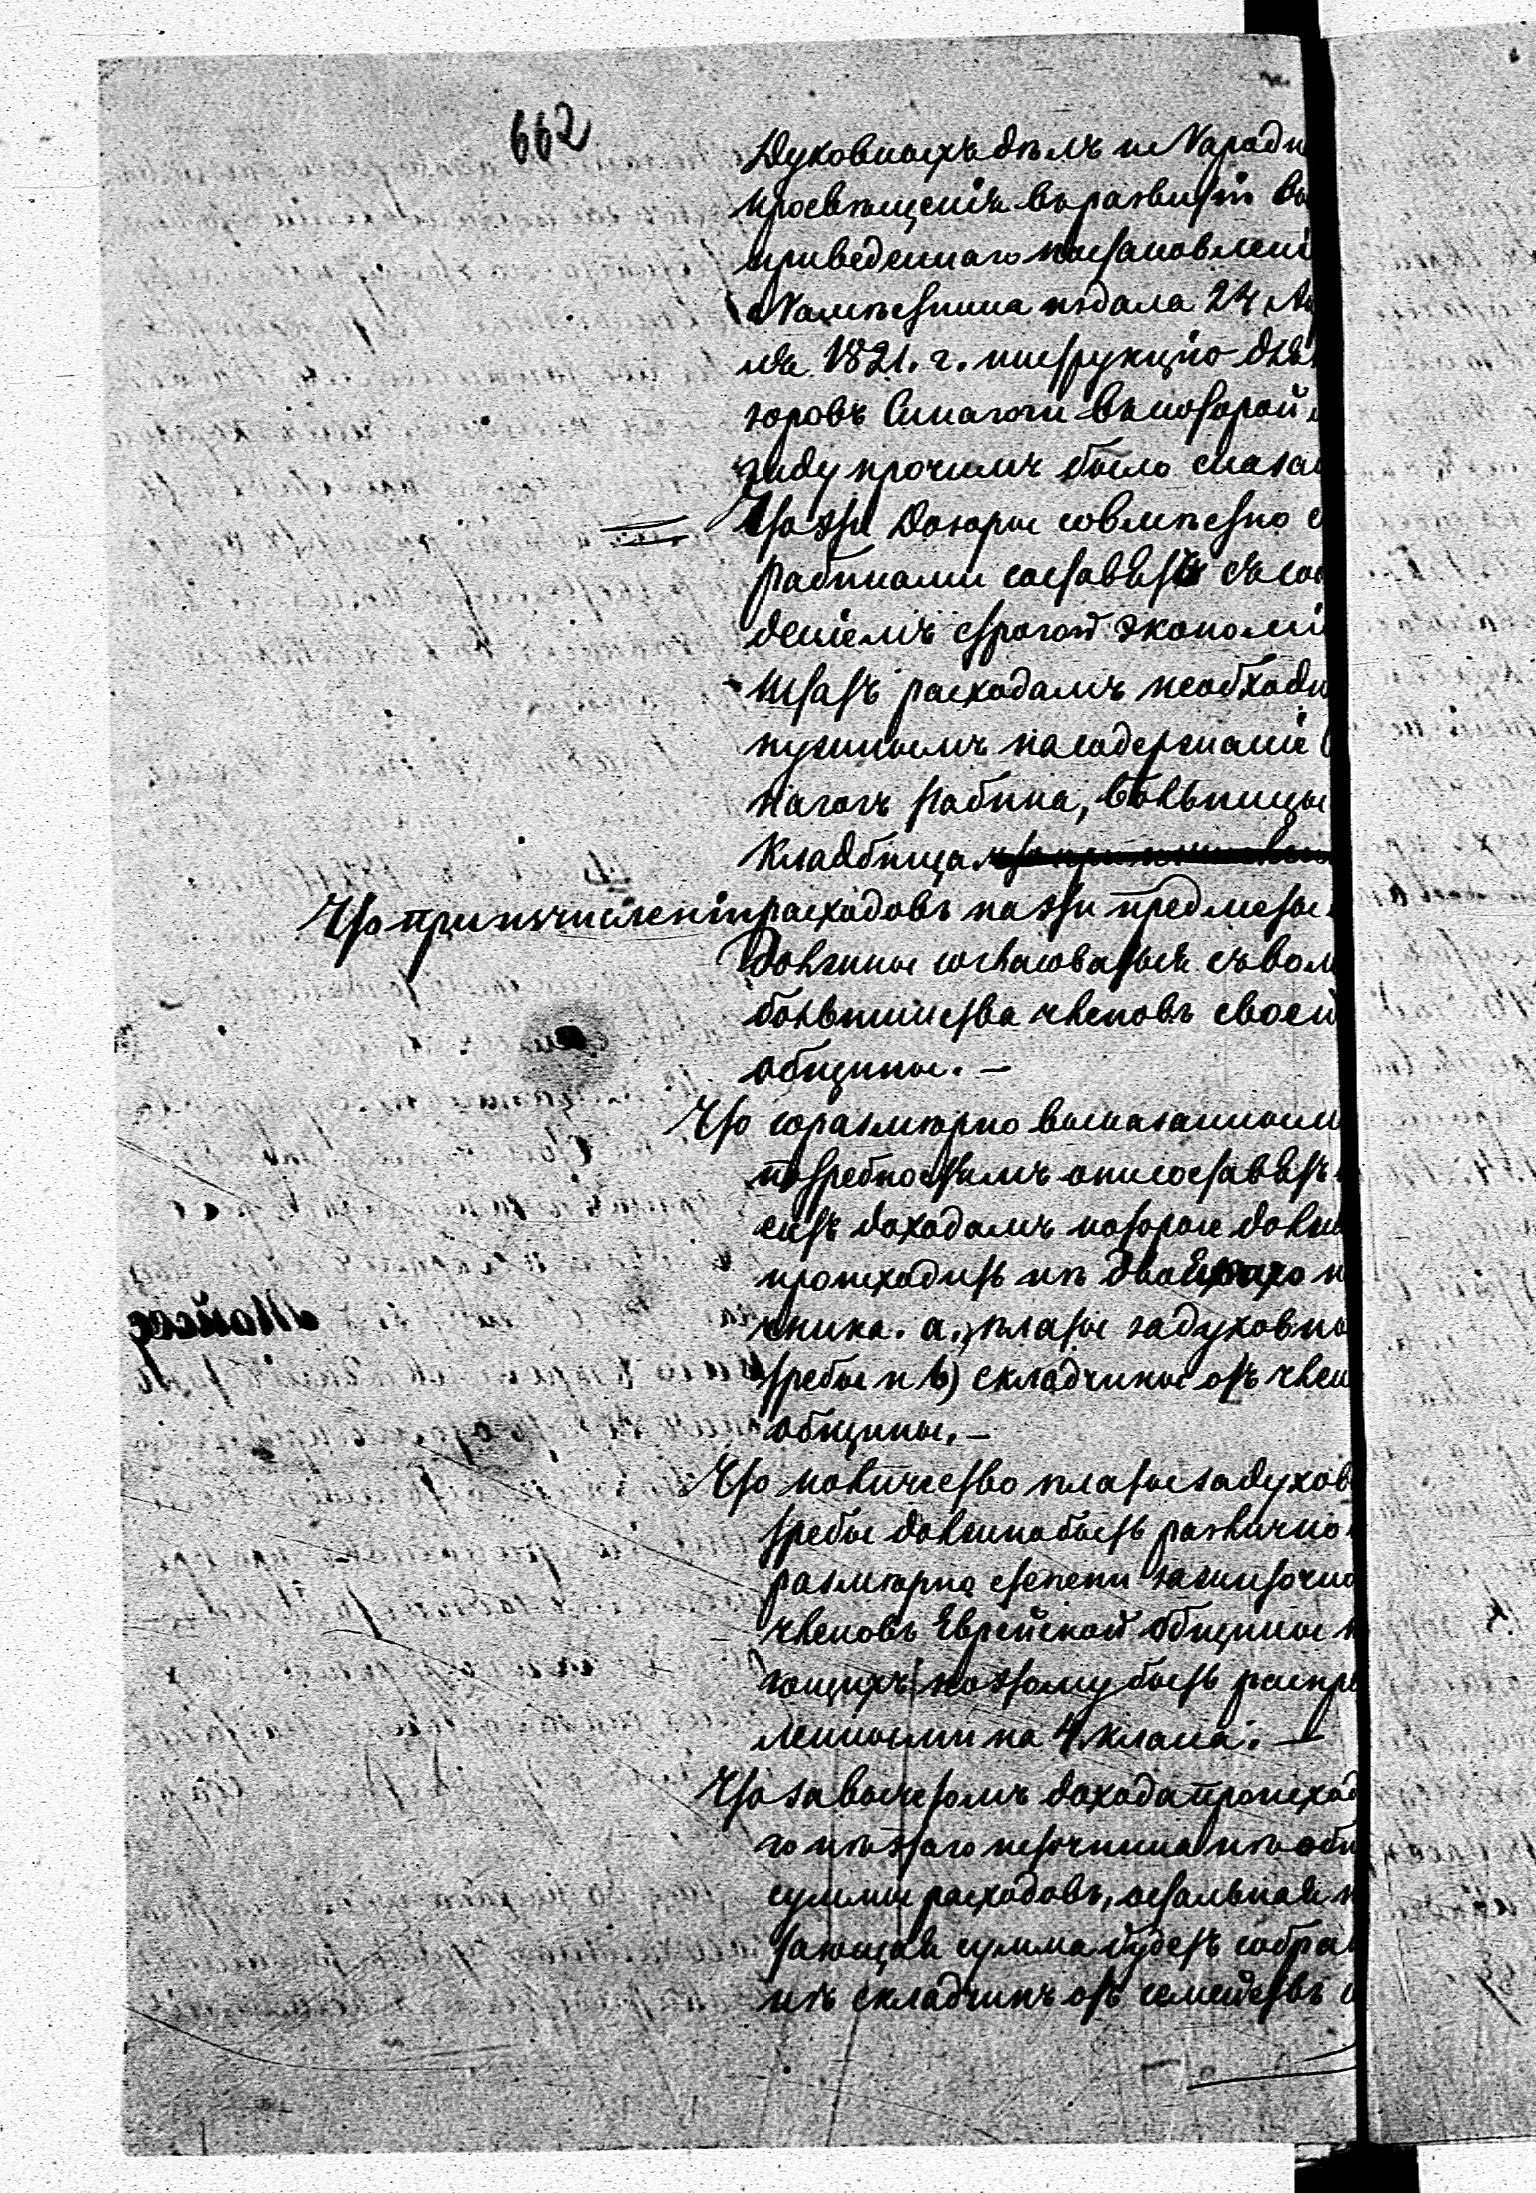 662
Духовныхъ дѣлъ и Народн
просвѣщенія въ развитіи вы
приведеннаго постановлені
Намѣстника издала 24 Ап
ля 1821. г. инструкцію для
зоровъ Синагоги въ которой
жду прочимъ было сказан
Что эти Дозоры совмѣстно с
рабинами составятъ съ соб
деніемъ строгой экономіи
штатъ расходамъ необходи
нужнымъ на содержаніе С
нагогъ рабина, больницы
Кладбища
Что при исчисленіи расходовъ на эти предметы
Должны согласоваться съ вол
большинства членовъ своей
общины. —
Что соразмѣрно высказаннымъ
потребностямъ они составятъ
сетъ доходамъ которые должн
происходить изъ двоякаго и
чника. а, платы за духовны
требы и в) складчины отъ член
общины. —
Что количество платы за духов
требы должно быть различно
размѣрно степени зажиточно
членовъ Еврейской общины
гощихъ поэтому быть распре
ленными на 4 класа. —
Что за вычетомъ дохода происход
го изъ этаго источника изъ общ
суммы расходовъ, остальная н
тающая сумма будетъ собран
изъ складчинъ отъ семействъ